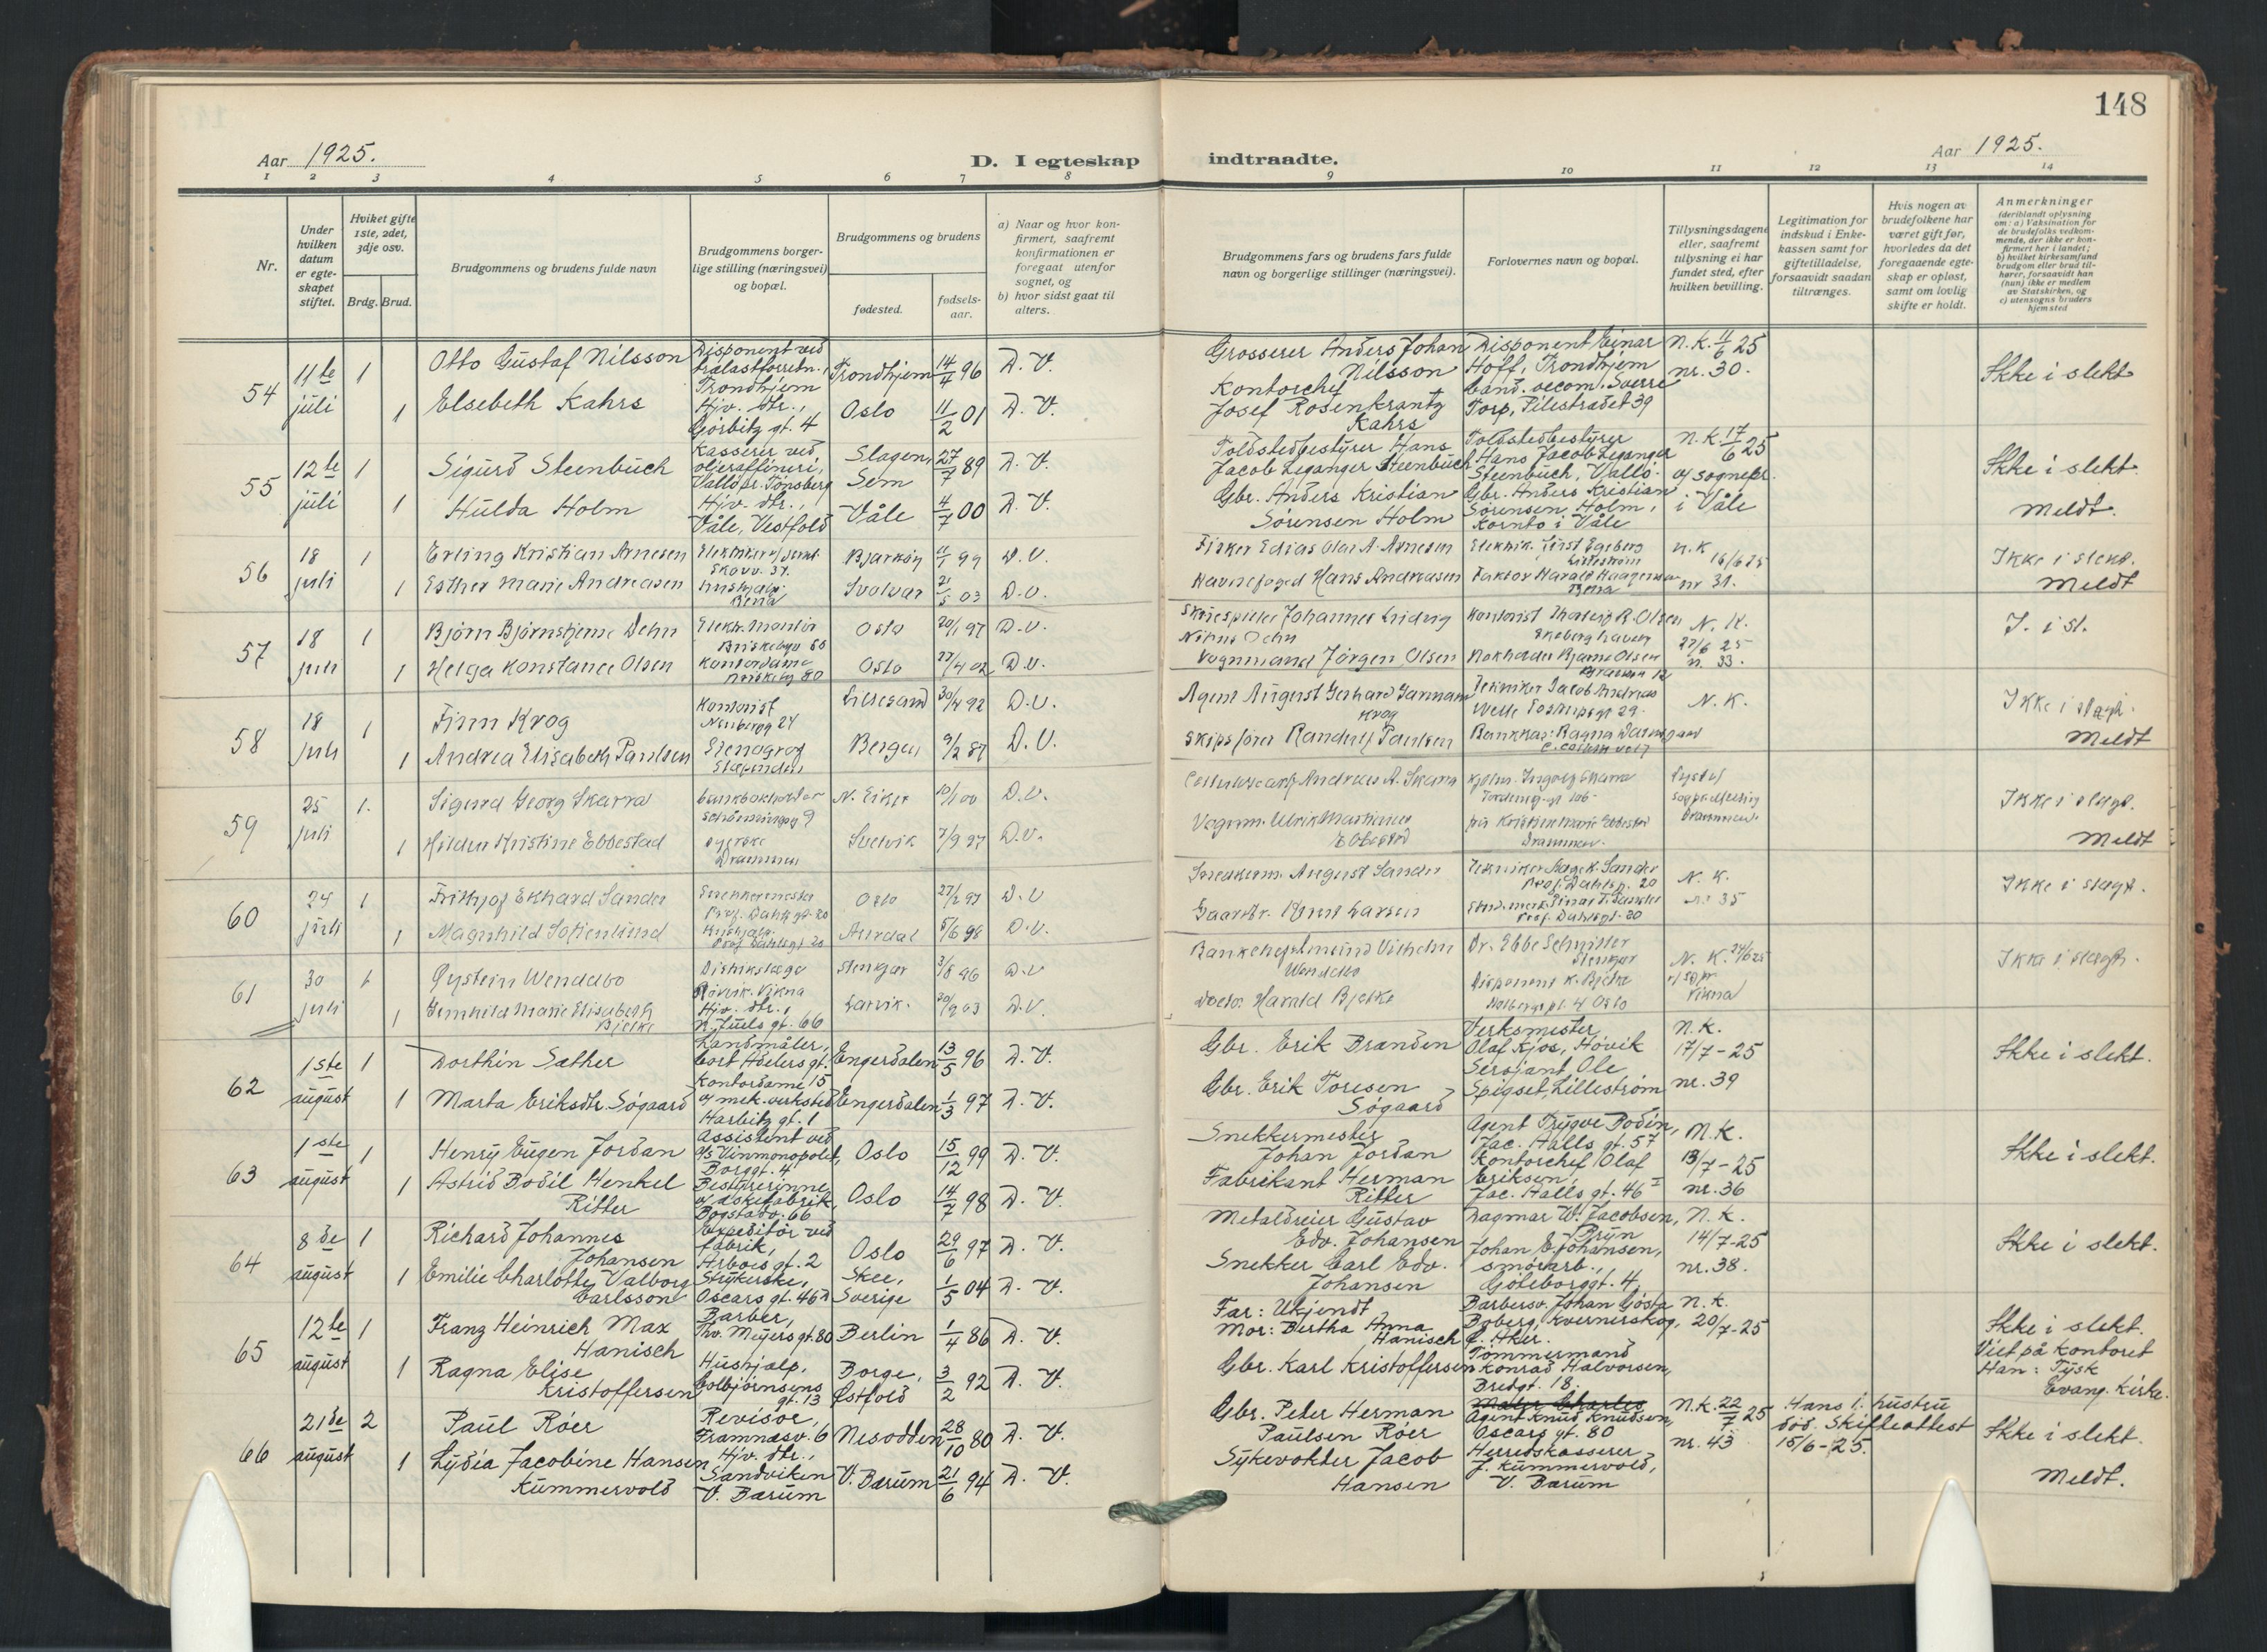 148
Aar 1925.
D. I egteskap
indtraadte.
Aar 1925.
1 2 3 4 5 6 7 8
9 10 11 12 13 14
Nr.
Under hvilken datum er egteskapet stiftet.
Hviket gifte 1ste, 2det, 3dje osv.
Brdg. Brud.
Brudgommens og brudens fulde navn
Brudgommens borgerlige stilling (næringsvei) og bopæl.
Brudgommens og brudens
fødested.
fødselsaar.
a) Naar og hvor konfirmert, saafremt konfirmationen er foregaat utenfor sognet, og
b) hvor sidst gaat til alters.
Brudgommens fars og brudens fars fulde navn og borgerlige stillinger (næringsvei).
Forlovernes navn og bopæl.
Tillysningsdagene eller, saafremt tillysning ei har fundet sted, efter hvilken bevilling.
Legitimation for indskud i Enkekassen samt for giftetilladelse, forsaavidt saadan tiltrænges.
Hvis nogen av brudefolkene har været gift før, hvorledes da det foregaaende egteskap er opløst, samt om lovlig skifte er holdt.
Anmerkninger
(deriblandt oplysning om: a) Vaksination for de brudefolks vedkommende, der ikke er konfirmert her i landet; b) hvilket kirkesamfund brudgom eller brud tilhører, forsaavidt han (hun) ikke er medlem av Statskirken, og c) utensogns bruders hjemsted
54
11te juli
1
Otto Gustaf Nilsson
Disponent ved trælastforretn., Trondhjem
Trondhjem
14/4 96
D. V.
Grosserer Anders Johan Nilsson
Disponent Einar Hoff, Trondhjem
N.K. 11/6 25
nr. 30.
Ikke i slekt
1
Elsebeth Kahrs
Hjv. dtr., Gørbitz gt. 4
Oslo
11/2 01
D. V.
Kontorchef Josef Rosenkrantz Kahrs
Cand. oecom. Sverre Torp, Pilestrædet 39
55
12te juli
1
Sigurd Steenbuch
Kasserer ved oljeraffineri, Vallø pr. Tønsberg
Slagen, Sem
27/7 89
D. V.
Toldstedbestyrer Hans Jacob Leganger Steenbuch
Toldstedbestyrer Hans Jacob Leganger Steenbuch, Vallø.
N.K. 17/6 25
v/ sognepr. i Våle
Ikke i slekt.
Meldt.
1
Hulda Holm
Hjv. dtr., Våle, Vestfold
Våle
4/7 00
D. V.
Gbr. Anders Kristian Sørensen Holm
Gbr. Anders Kristian Sørensen Holm, i Våle
56
18 juli
1
Erling Kristian Arnesen
Bjarkøy
D.V.
N.K.
16/6 25
nr 31.
Ikke i slekt.
Meldt
1
Esther Marie Andreasen
Hushjælp.
Svolvær
D.V.
Hans Andreasen
57
18 juli
1
Bjørn Bjørnstjerne Dehn
Elektr. Montør
Oslo
20/1 97
D.V.
Skuespiller Johannes Ludvig
N. K.
22/6 25
n. 33.
I. i sl.
1
Helga Konstance Olsen
Kontordame
Oslo
27/4 02
D.V.
Vognmand Jørgen Olsen
Bjarne Olsen
58
18 juli
1
Finn Krog
Kontorist
Neubergg 24
Lillesand
30/4 92
D.V.
Agent August Gerhard
Krog
Tekniker Jacob Andreas
N. K.
Ikke i slegt.
Meldt
1
Andrea Elisabeth Paulsen
Stenograf
Bergen
9/2 87
D.V.
Skipsfører Randulf Paulsen
59
25 juli
1.
Sigurd Georg Skarra
bankbokholder
N. Eiker
10/1 00
D.V.
Andreas A. Skarra
Drammen.
Ikke i slegt.
Meldt
1
Hilda Kristine Ebbestad
syerske
Drammen
Svelvik
7/9 97
D.V.
Vognm. Ulrik Martinius Ebbestad
Drammen.
60
24 juli
1
Frithjof Ekhard Sander
Snekkermester
Prof. Dahls gt. 20
Oslo
27/2 97
D.V
Snekkerm. August Sander
Prof. Dahlsg. 20
N. K.
nr 35
Ikke i slegt.
1
Magnhild Sofienlund
Hushjælp.
Prof. Dahlsgt 20
Aurdal
5/6 98
D.V.
Gaardbr. Larsen
Prof. Dahlsgt. 20
61
30 juli
1
Øystein Wendelbo
Distriktslæge
Rørvik. Vikna
Stenkjær
3/8 96
D.V
Wendelbo
Dr. Ebbe
N. K. 24/6 25
v/ sgpr. Vikna
Ikke i slegt.
1
Gunhild Marie Elisabeth Bjelke
Hjv. dtr., N. Juels gt. 66
Larvik.
D.V.
Doctor Harald Bjelke
Disponent K. Bjelke
Holbergs pl. 4 Oslo
62
1ste august
1
Dorthin Sæther
Landmåler, Cort Adelers gt. 15
Engerdalen
13/5 96
D. V.
Gbr. Erik Brænden
Verksmester Olaf Kjos, Høvik
N.K.
17/7-25
nr. 39
Ikke i slekt.
1
Marta Eriksdtr. Søgaard
Kontordame v/ mek. verksted Harbitz gt. 1
Engerdalen
1/3 97
D. V.
Gbr. Erik Toresen Søgaard
Sersjant Ole Spigset, Lillestrøm
63
1ste august
1
Henry Eugen Jordan
Assistent ved A/S Vinmonopolet, Borggt. 4
Oslo
15/12 99
D. V.
Snekkermester Johan Jordan
Agent Trygve Bodin, Jac. Aalls gt. 57
N.K.
13/7-25
nr. 36
Ikke i slekt.
1
Astrid Bodil Henkel Ritter
Bestyrerinne v/ æskefabrik, Bogstadv. 66
Oslo
14/7 98
D. V.
Fabrikant Herman Ritter
Kontorchef Olaf Eriksen, Jac. Aalls gt. 46 I
64
8de august
1
Richard Johannes Johansen
Expeditør ved fabrik, Arbos gt. 2
Oslo
29/6 97
D. V.
Metaldreier Gustav Edv. Johansen
Dagmar W. Jacobsen, Bryn
N.K.
14/7-25
nr. 38.
Ikke i slekt.
1
Emilie Charlotte Valborg Carlsson
Strykerske, Oscars gt. 46
Skee, Sverige
1/5 04
D. V.
Snekker Carl Edv. Johansen
Johan E. Johansen, smørarb., Gøteborggt. 4
65
12te august
1
Franz Heinrich Max Hanisch
Barber, Thv. Meyers gt. 80
Berlin
1/4 86
D. V.
Far: Ukjendt
Mor: Bertha Anna Hanisch
Barbersv. Johan Gøsta Boberg, Kvernerskog, Ø. Aker.
N.K.
20/7-25
Ikke i slekt.
Viet på kontoret
Han: Tysk Evang. kirke.
1
Ragna Elise Kristoffersen
Hushjælp, Colbjørnsens gt. 13
Borge, Østfold
3/2 92
D. V.
Gbr. Karl Kristoffersen
Tømmermand Konrad Halvorsen, Bredgt. 18.
66
21de august
2
Paul Røer
Revisor, Framnæsv. 6
Nesodden
28/10 80
D. V.
Gbr. Peter Herman Paulsen Røer
Agent Knud Knudsen, Oscars gt. 80
N.K. 22/7 25
nr. 43
Hans 1. hustru død. Skifteattest 15/6-25.
Ikke i slekt.
Meldt.
1
Lydia Jacobine Hansen Kummervold
Hjv. dtr., Sandviken V. Bærum
V. Bærum
21/6 94
D. V.
Sykevokter Jacob Hansen
Herredskasserer J. Kummervold, V. Bærum